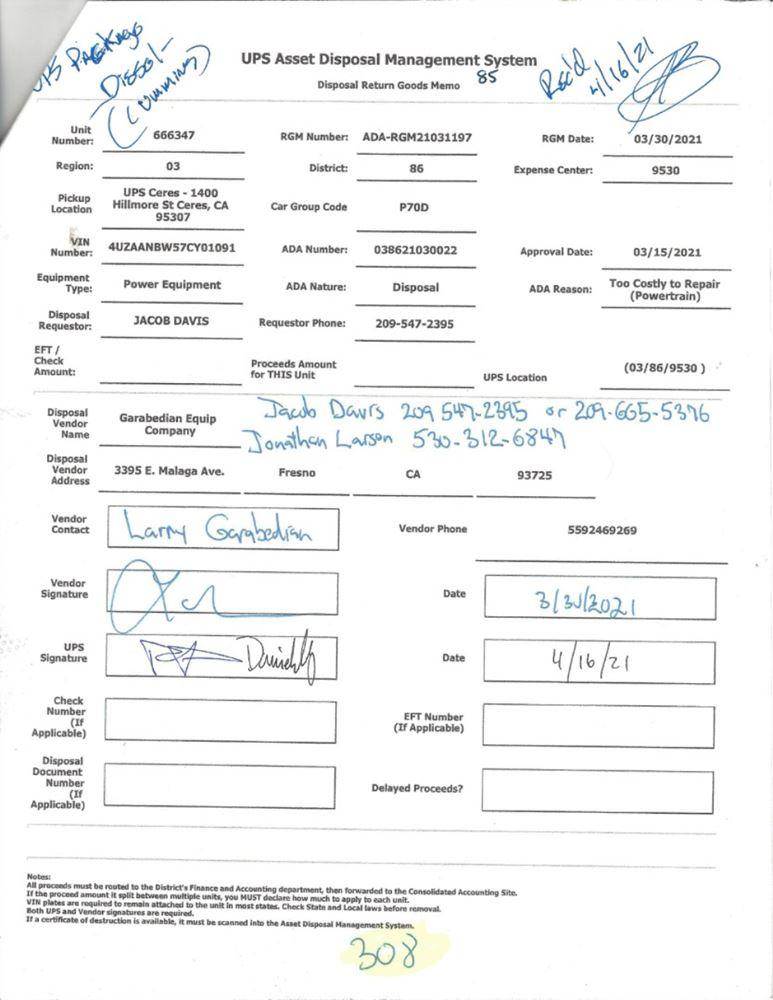 UPS Package
Diesel-
(Cummins)
UPS Asset Disposal Management System
85
Disposal Return Goods Memo
Rec'd
4/16/21
Unit Number: 666347 RGM Number: ADA-RGM21031197 RGM Date: 03/30/2021
Region: 03 District: 86 Expense Center: 9530
Pickup Location UPS Ceres - 1400 Hillmore St Ceres, CA 95307 Car Group Code P70D
VIN Number: 4UZAANBW57CY01091 ADA Number: 038621030022 Approval Date: 03/15/2021
Equipment Type: Power Equipment ADA Nature: Disposal ADA Reason: Too Costly to Repair (Powertrain)
Disposal Requestor: JACOB DAVIS Requestor Phone: 209-547-2395
EFT / Check Amount: Proceeds Amount for THIS Unit UPS Location (03/86/9530 )
Jacob Davis 209 547-2395 or 209-665-5376
Disposal Vendor Name Garabedian Equip Company
Jonathan Larson 530-312-6847
Disposal Vendor Address 3395 E. Malaga Ave. Fresno CA 93725
Vendor Contact Larry Garabedian Vendor Phone 5592469269
Vendor Signature Date 3/30/2021
UPS Signature Date 4/16/21
Check Number (If Applicable) EFT Number (If Applicable)
Disposal Document Number (If Applicable) Delayed Proceeds?
Notes:
All proceeds must be routed to the District's Finance and Accounting department, then forwarded to the Consolidated Accounting Site.
If the proceed amount it split between multiple units, you MUST declare how much to apply to each unit.
VIN plates are required to remain attached to the unit in most states. Check State and Local laws before removal.
Both UPS and Vendor signatures are required.
If a certificate of destruction is available, it must be scanned into the Asset Disposal Management System.
308